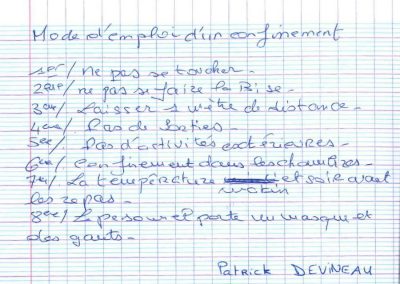 Mode d'emploi d'un confinement
1er/ ne pas se toucher -
2ème/ ne pas se faire la Bise -
3ème/ Laisser 1 mètre de distance -
4ème/ Pas de Sorties -
5ème/ Pas d'activités extérieures -
6ème/ confinement dans les chambres -
7ème/ La température et soir avant
matin
les repas -
8ème/ Le personnel porte un masque et
des gants -
Patrick DEVINEAU